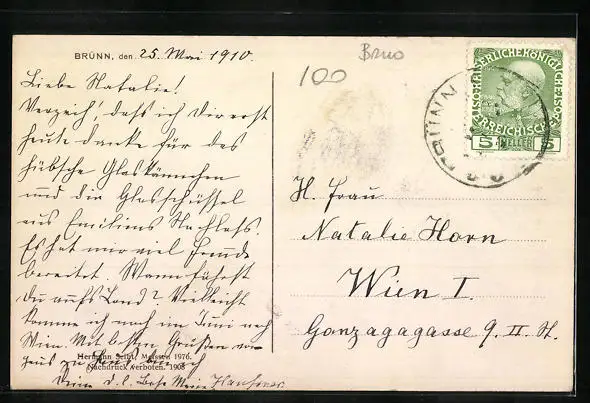 BRÜNN, den 25. Mai 1910.
Liebe Natalie!
Verzeih', dass ich Dir erst
heute danke für das
hübsche Glaskännchen
und die Glasschüssel
aus Emiliens Nachlass.
Es hat mir viel Freude
bereitet. Wann fährst
Du aufs Land? Vielleicht
komme ich noch im Juni nach
Wien. Mit besten Grüssen von
Haus zu Haus bin ich
Deine d. l. Base Marie
Hermann Seibt, Meissen 1976.
Nachdruck verboten. 1908
100
Brno
BRÜNN
KAISERLICHE KÖNIGLICHE
ÖSTERREICHISCHE
5 HELLER 5
H. Frau
Natalie Horn
Wien I.
Gonzagagasse 9. II. St.